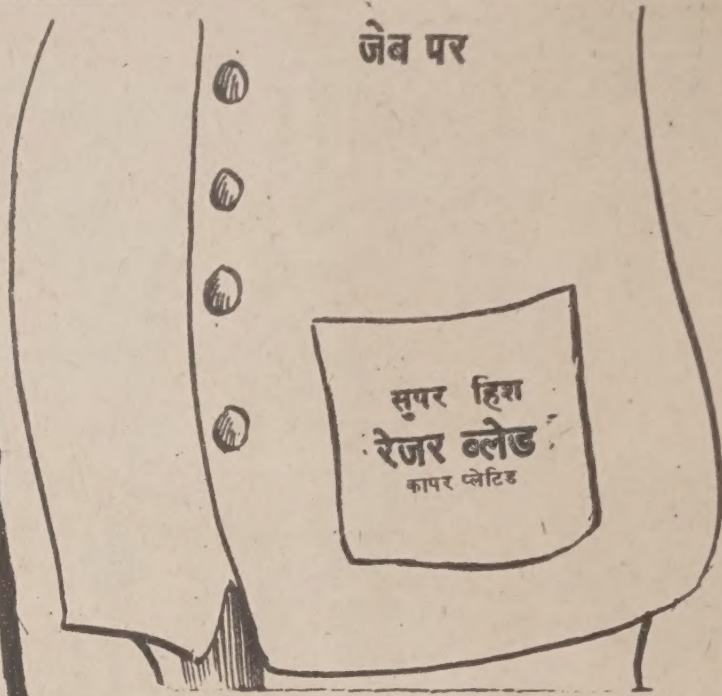 जेब पर
सुपर हिश
रेजर ब्लेड
कापर प्लेटिड